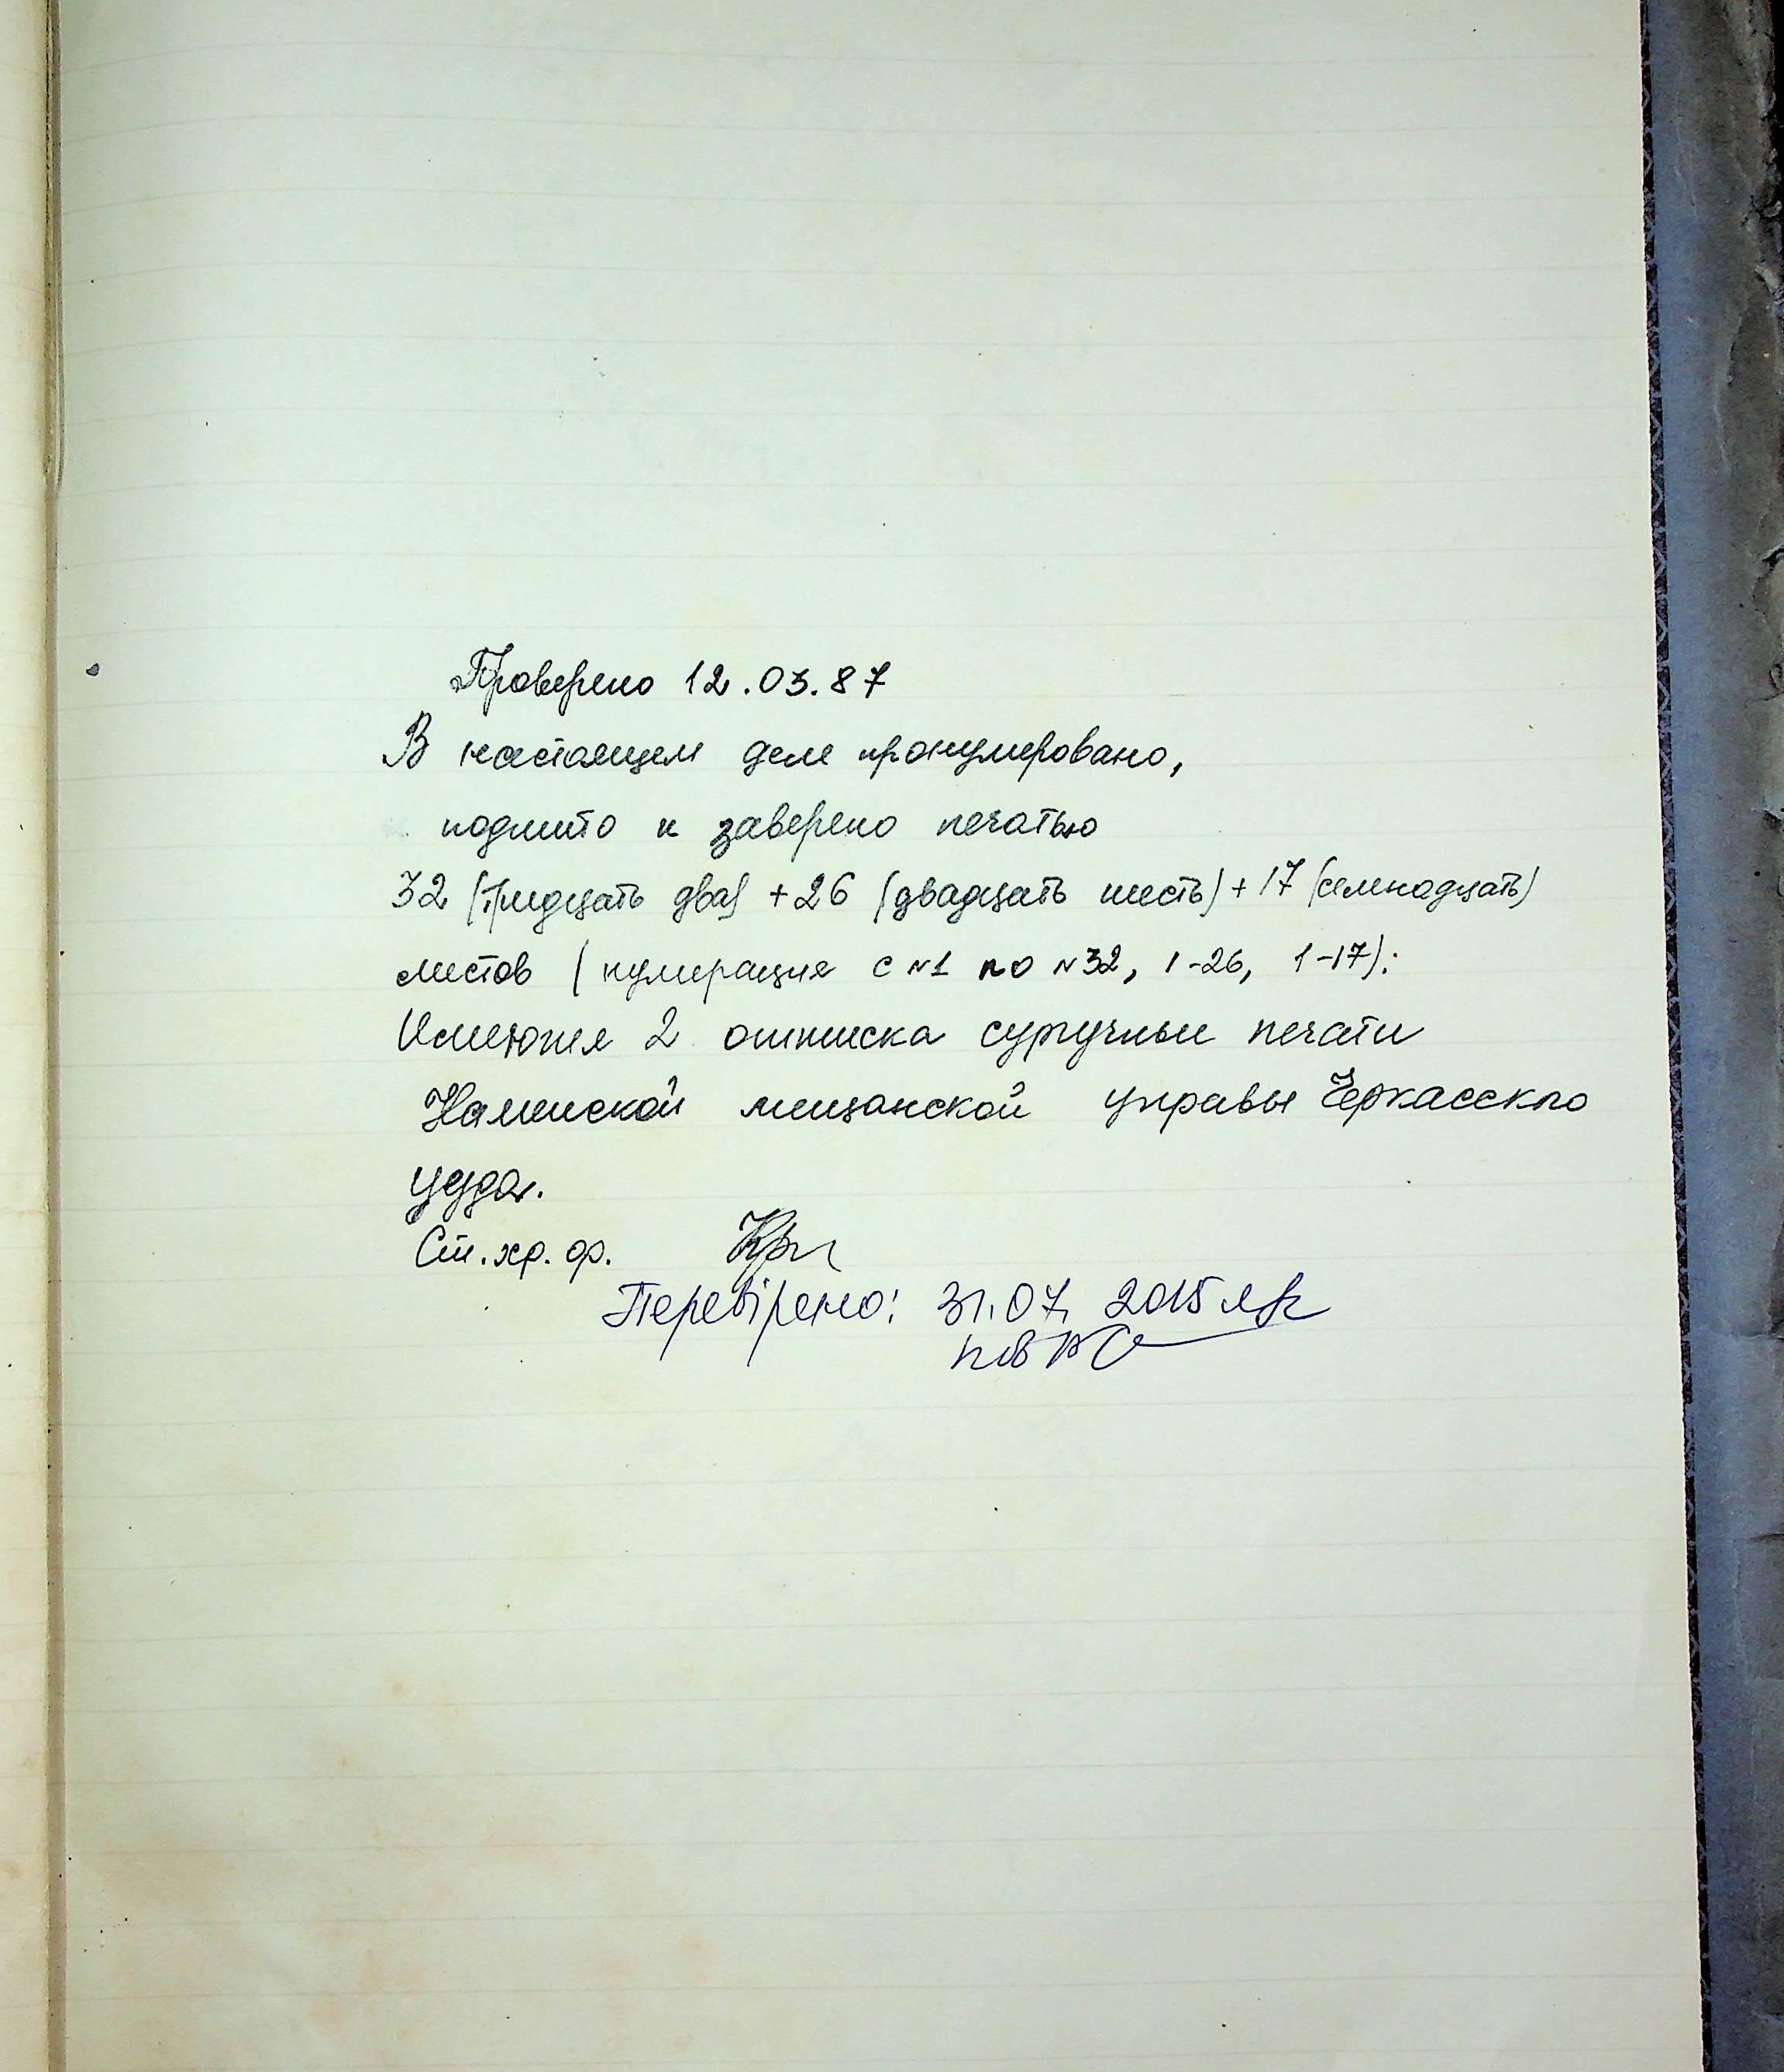 Проверено 12.03.87
В настоящем деле пронумеровано,
подшито и заверено печатью
32 (тридцать два) + 26 (двадцать шесть) + 17 (семнадцать)
листов (нумерация с №1 по №32, 1-26, 1-17).
Имеются 2 оттиска сургучных печати
Каменской мещанской управы Черкасского
уезда.
Ст. хр. ф.
Перевірено: 31.07. 2015